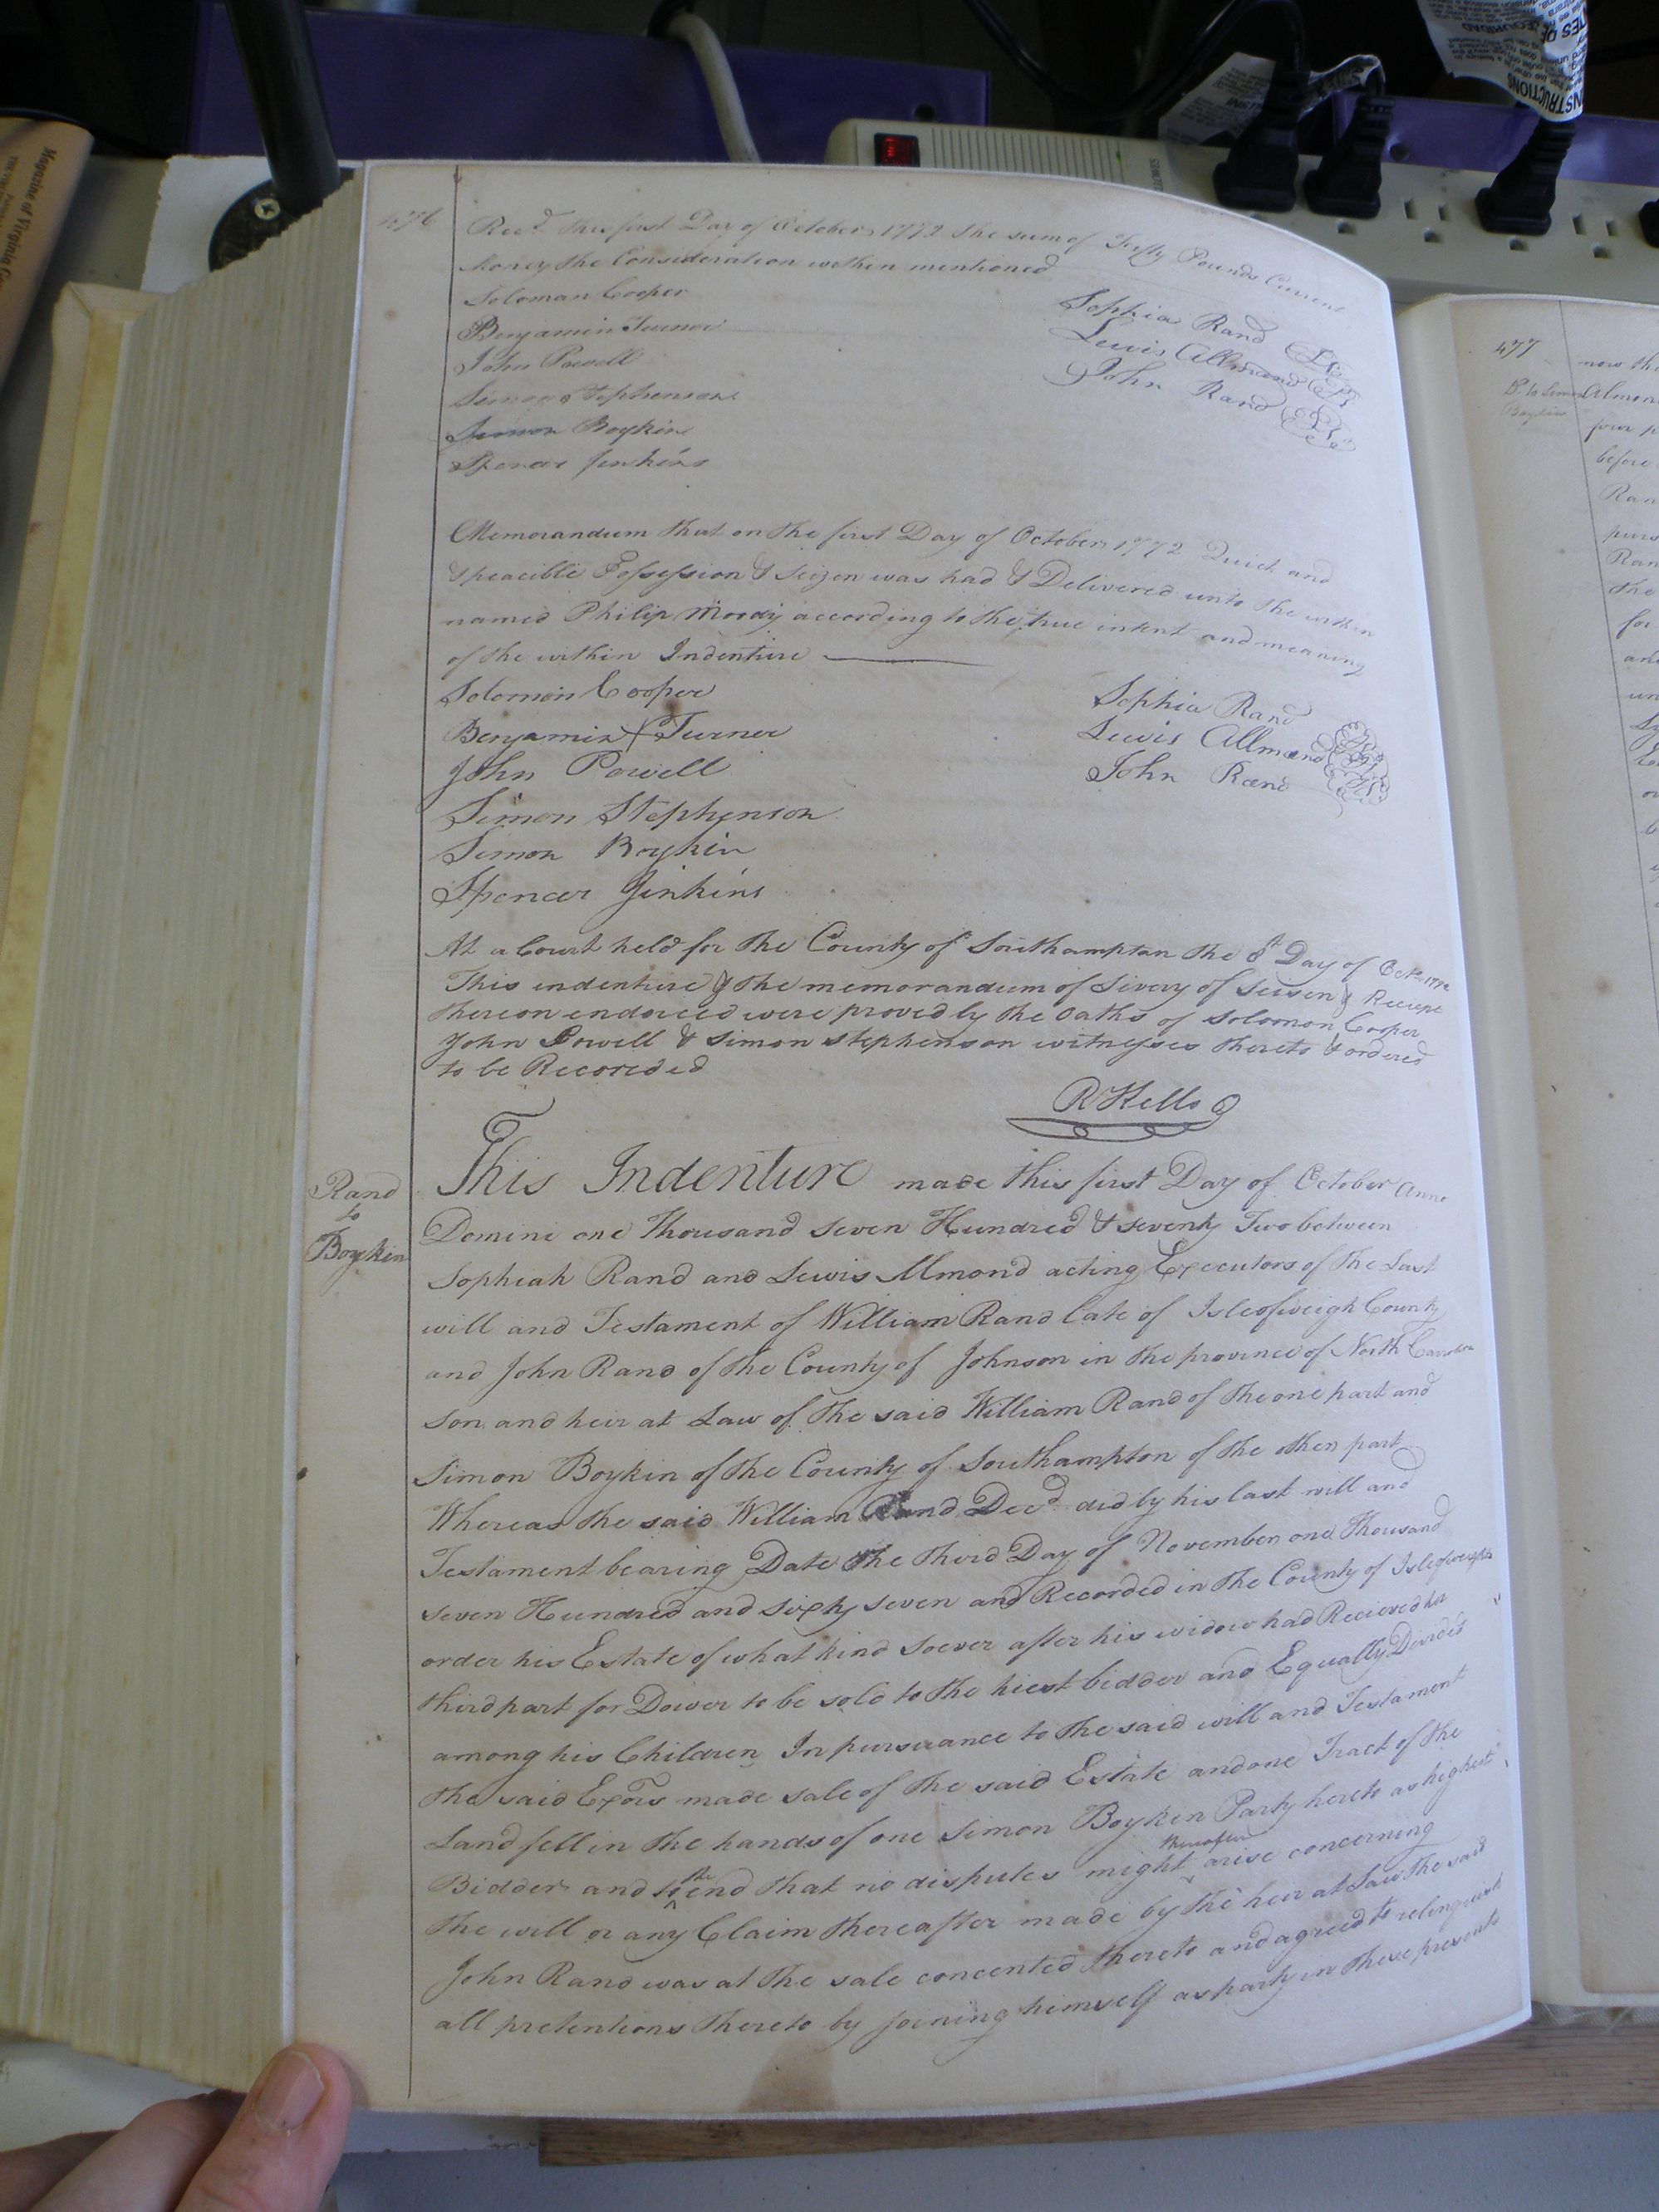 Magazine of Virginia
INSTRUCTIONS
476
Rec.d this first Day of October 1772 the sum of Fifty Pounds Current
Money the Consideration within mentioned
Soloman Cooper
Benjamin Turner
John Powell
Simon Stephenson
Simon Boykin
Spencer Jenkins
Sophia Rand
Lewis Allmand
John Rand
Memorandum that on the first Day of October 1772 Quick and
& peacible Possession & Seizen was had & Delivered unto the within
named Philip Moody according to the true intent and meaning
of the within Indenture
Solomon Cooper
Benjamin Turner
John Powell
Simon Stephenson
Simon Boykin
Spencer Jinkins
Sophia Rand
Lewis Allmand
John Rand
At a Court held for the County of Southampton the 8th Day of Octr. 1772
This indenture & the memorandum of Livery of Seisen & Reciept
thereon endorced were proved by the Oaths of Solomon Cooper
John Powell & Simon Stephenson witnesses thereto & ordered
to be Recorded
R Kello
Rand
to
Boykin
This Indenture made this first Day of October Anno
Domini one Thousand seven Hundred & seventy Two between
Sophiah Rand and Lewis Almond acting Executors of the Last
will and Testament of William Rand late of Isleofweigh County
and John Rand of the County of Johnson in the province of North Carolina
son and heir at Law of the said William Rand of the one part and
Simon Boykin of the County of Southampton of the other part
Whereas the said William Rand Decd did by his last will and
Testament bearing Date the Third Day of November one Thousand
seven Hundred and sixty seven and Recorded in the County of Isleofweight
order his Estate of what kind soever after his widow had Recieved her
third part for Dower to be sold to the hiest bidder and Equally Divided
among his Children In pursuance to the said will and Testament
the said Exors made sale of the said Estate and one Tract of the
Land fell in the hands of one Simon Boyken Party hereto as highest
Bidder and to the end that no disputes might thereafter arise concerning
the will or any Claim thereafter made by the heir at Law the said
John Rand was at the sale concented thereto and agreed to relinquish
all pretentions thereto by joining himself as party in these presents
477
now th
D.o to Simon
Boykin
Almon
four p
before
Ran
purs
Ran
the
for
and
un